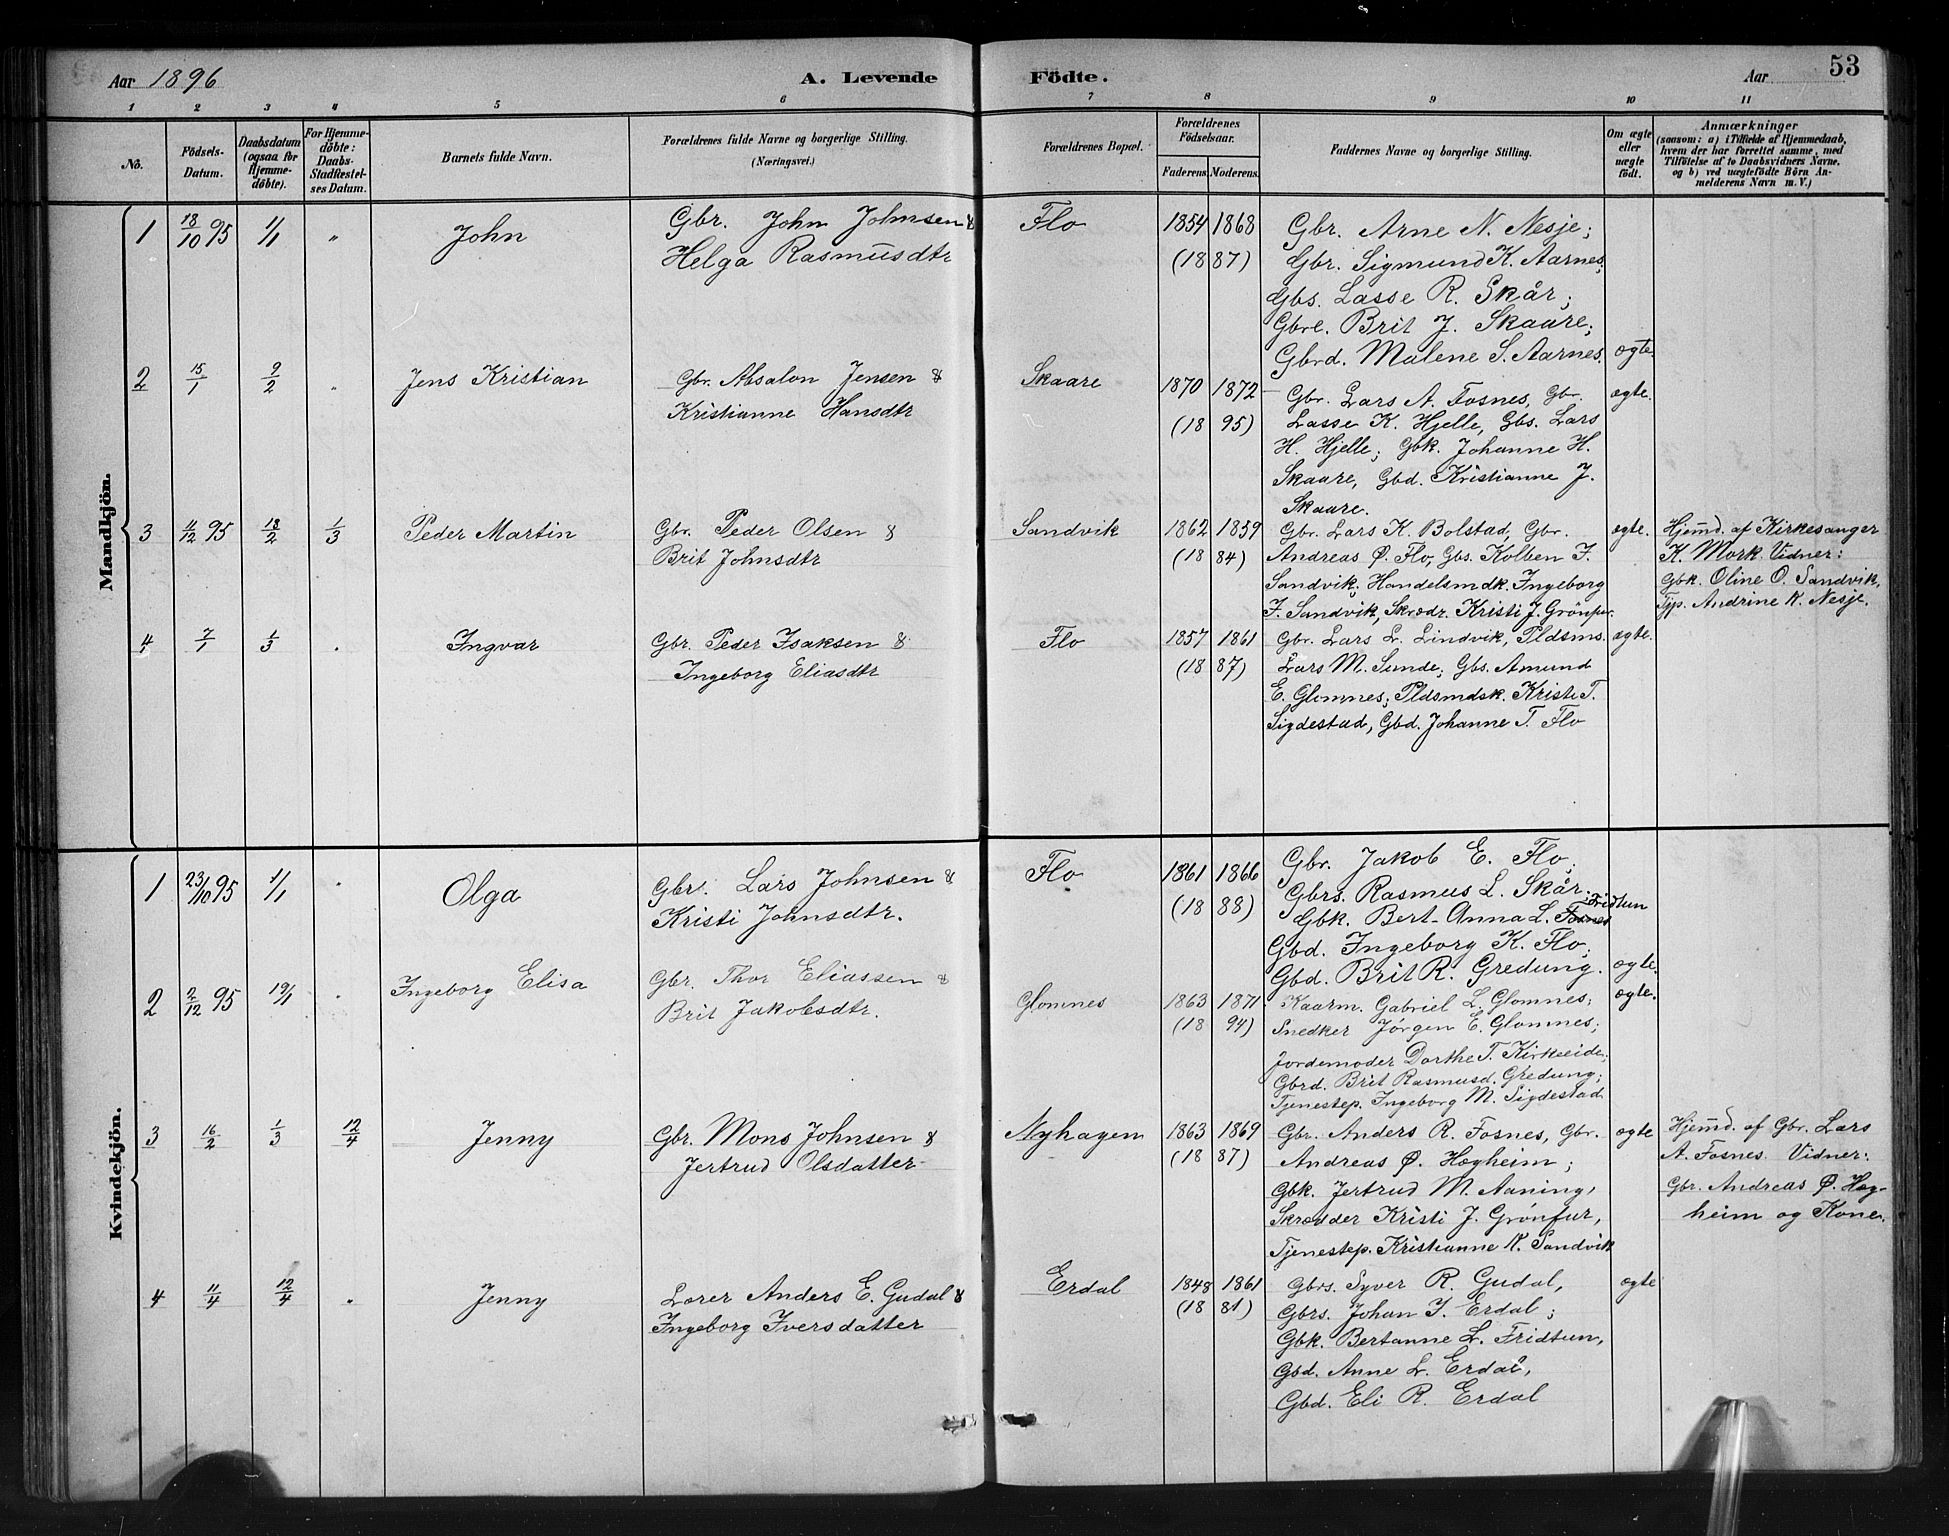 Aar 1896
A. Levende
Födte.
Aar
53
1 2 3 4 5 6 7 8 9 10 11
No.
Födsels-
Datum.
Daabsdatum
(ogsaa for
Hjemme-
döbte).
For Hjemme-
döbte:
Daabs-
Stadfæstel-
ses Datum.
Barnets fulde Navn.
Forældrenes fulde Navne og borgerlige Stilling.
(Næringsvei.)
Forældrenes Bopæl.
Forældrenes
Födselsaar.
Faderens. Moderens.
Faddernes Navne og borgerlige Stilling.
Om ægte
eller
uægte
födt.
Anmærkninger
(saasom: a) i Tilfælde af Hjemmedaab,
hvem der har forrettet samme, med
Tilföielse af to Daabsvidners Navne,
og b) ved uægtefödte Börn An-
melderens Navn m. V.)
Mandkjön.
1 18/10 95 1/1 " John
Gbr. John Johnsen &
Helga Rasmusdtr
Flo
1854 1868
(18 87)
Gbr. Arne N. Nesje;
Gbr. Sigmund K. Aarnes;
Gbs. Lasse R. Skår;
Gbre. Brit J. Skaare;
Gbrd. Malene S. Aarnes.
ægte.
2 15/1 9/2 " Jens Kristian
Gbr. Absalon Jensen &
Kristianne Hansdtr
Skaare
1870 1872
(18 95)
Gbr. Lars A. Fosnes, Gbr.
Lasse K. Hjelle, Gbs. Lars
H. Hjelle; Gbk. Johanne H.
Skaare, Gbd. Kristianne J.
Skaare.
ægte.
3 11/12 95 18/2 1/3 Peder Martin
Gbr. Peder Olsen &
Brit Johnsdtr
Sandvik
1862 1859
(18 84)
Gbr. Lars K. Bolstad, Gbr.
Andreas Ø. Flo, Gbs. Kolben J.
Sandvik, Handelsmdk. Ingeborg
J. Sandvik, Skrædr. Kristi J. Grönfur.
ægte.
Hjemd. af Kirkesanger
K. Mork. Vidner:
Gbk. Oline O. Sandvik,
Tjp. Andrine K. Nesje.
4 7/1 1/3 " Ingvar
Gbr. Peder Isaksen &
Ingeborg Eliasdtr
Flo
1857 1861
(18 87)
Gbr. Lars L. Lindvik, Pldsms.
Lars M. Sunde, Gbs. Amund
E. Glomnes; Pldsmdsk. Kristi T.
Sigdestad, Gbd. Johanne T. Flo
ægte.
Kvindekjön.
1 23/10 95 1/1 " Olga
Gbr. Lars Johnsen &
Kristi Johnsdtr.
Flo
1861 1866
(18 88)
Gbr. Jakob E. Flo;
Gbrs. Rasmus L. Skår;
Gbk. Bert-Anna L. Fosnes Fridtun
Gbd. Ingeborg K. Flo;
Gbd. Brit R. Gredung.
ægte.
2 2/12 95 19/1 " Ingeborg Elisa
Gbr. Thor Eliassen &
Brit Jakobsdtr.
Glomnes
1863 1871
(18 94)
Kaarm. Gabriel L. Glomnes;
Snedker Jörgen E. Glomnes;
Jordemoder Dorthe T. Kirkeeide;
Gbrd. Brit Rasmusd. Gredung;
Tjenestep. Ingeborg M. Sigdestad
ægte.
3 16/2 1/3 12/4 Jenny
Gbr. Mons Johnsen &
Jertrud Olsdatter
Nyhagen
1863 1869
(18 87)
Gbr. Anders R. Fosnes, Gbr.
Andreas Ø. Hægheim;
Gbk. Jertrud M. Aaning,
Skrædder Kristi J. Grönfur,
Tjenestep. Kristianne K. Sandvik
ægte
Hjemd. af Gbr. Lars
A. Fosnes. Vidner:
Gbr. Andreas Ø. Hæg-
heim og Kone.
4 11/4 12/4 " Jenny
Lærer Anders E. Gudal &
Ingeborg Iversdatter
Erdal
1848 1861
(18 81)
Gbrs. Syver R. Gudal,
Gbrs. Johan I. Erdal;
Gbk. Bertanne L. Fridtun,
Gbd. Anne L. Erdal,
Gbd. Eli R. Erdal
ægte